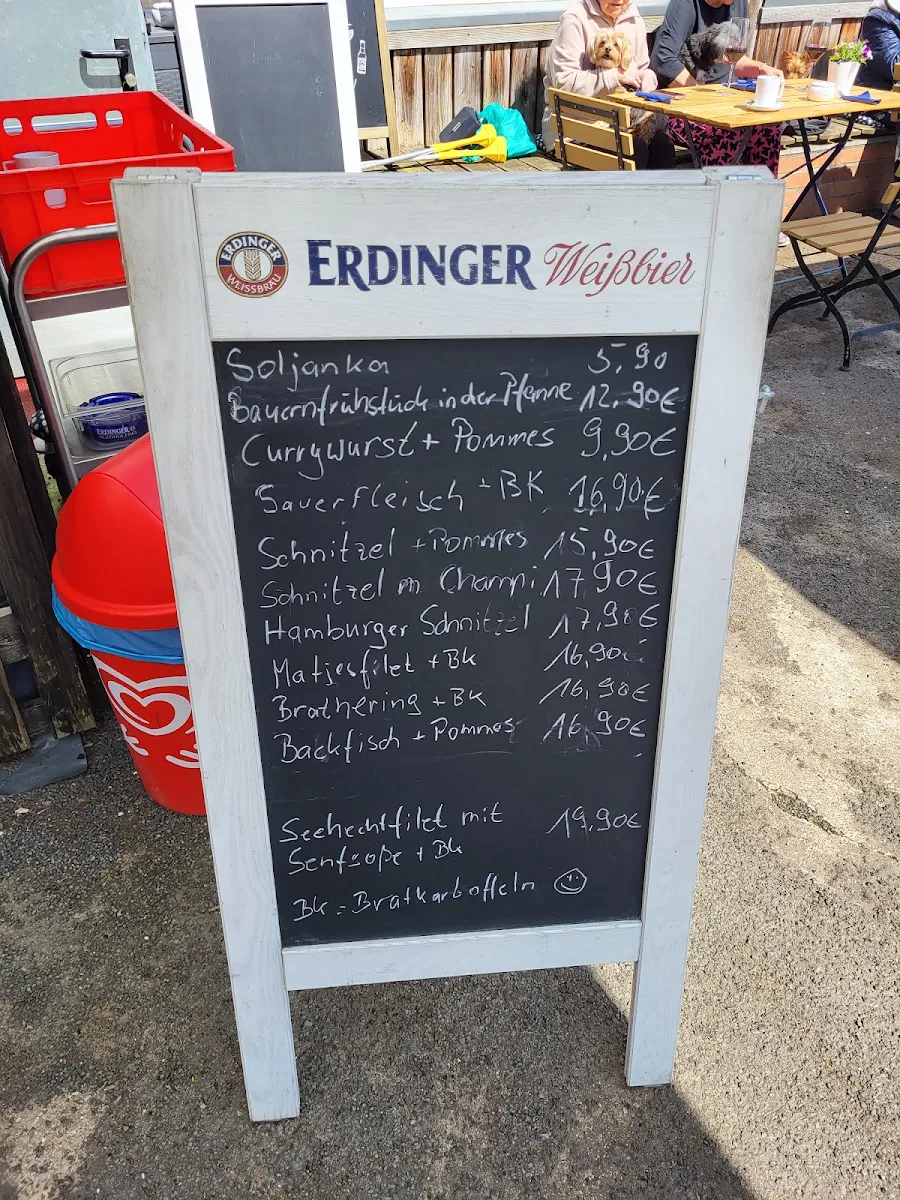 ERDINGER
WEISSBRÄU
ERDINGER Weißbier
Soljanka 5,90
Bauernfrühstück in der Pfanne 12,90€
Currywurst + Pommes 9,90€
Sauerfleisch + BK 16,90€
Schnitzel + Pommes 15,90€
Schnitzel m Champi 17,90€
Hamburger Schnitzel 17,90€
Matjesfilet + Bk 16,90€
Brathering + BK 16,90€
Backfisch + Pommes 16,90€
Seehechtfilet mit 19,90€
Senfsoße + Bk
Bk = Bratkartoffeln
ERDINGER